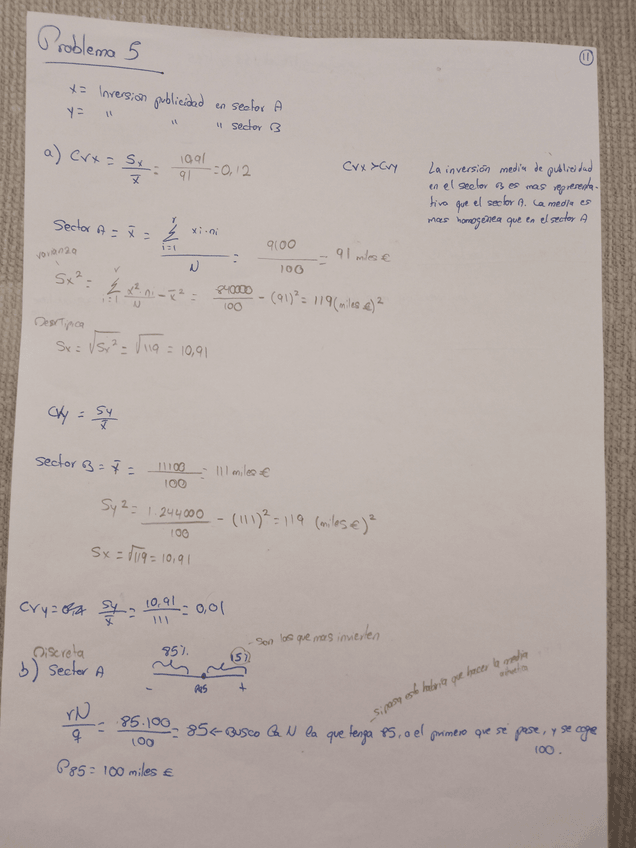 Problema 5
11
x = Inversion publicidad en sector A
y = " " " sector B
a) CVx = Sx / x̄ = 10,91 / 91 = 0,12
CVx > CVy
La inversión media de publicidad
en el sector B es mas representa-
tivo que el sector A. La media es
mas homogénea que en el sector A
Sector A = x̄ = Σ i=1 r xi·ni / N = 9100 / 100 = 91 miles €
varianza
Sx² = Σ i=1 r x²·ni / N - x̄² = 840000 / 100 - (91)² = 119 (miles €)²
Des típica
Sx = √Sx² = √119 = 10,91
CVy = Sy / x̄
Sector B = x̄ = 11100 / 100 = 111 miles €
Sy² = 1.244000 / 100 - (111)² = 119 (miles €)²
Sx = √119 = 10,91
CVy = Sy / x̄ = 10,91 / 111 = 0,01
Discreta
b) Sector A
85% 15% - Son los que mas invierten
- P85 +
- si pasa esto habria que hacer la media
rN / q = 85.100 / 100 = 85 ← Busco la N la que tenga 85, o el primero que se pase, y se coge
100.
P85 = 100 miles €